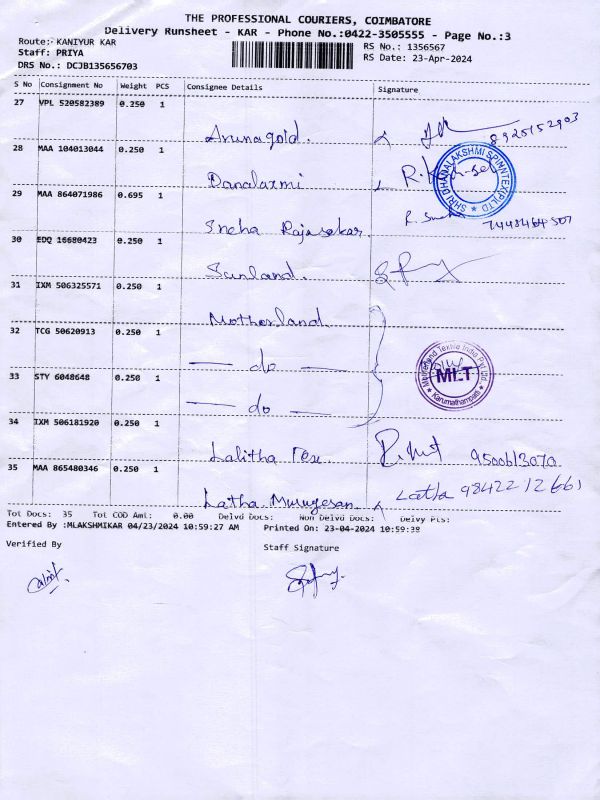 THE PROFESSIONAL COURIERS, COIMBATORE
Delivery Runsheet - KAR - Phone No.:0422-3505555 - Page No.:3
Route: KANIYUR KAR
RS No.: 1356567
Staff: PRIYA
RS Date: 23-Apr-2024
DRS No.: DCJB135656703
S No Consignment No Weight PCS Consignee Details Signature
27 VPL 520582389 0.250 1
Arunagold. 8925152903
28 MAA 104013044 0.250 1
Danalaxmi
SHRI DHANALAKSHMI SPINNTEX (P) LTD
29 MAA 864071986 0.695 1
Sneha Rajasekar R. Sneha 7448464507
30 EDQ 16680423 0.250 1
Sunland.
31 IXM 506325571 0.250 1
Motherland
32 TCG 50620913 0.250 1
— do —
Motherland Textile India Pvt Ltd.
MLT
Karumathampatti
33 STY 6048648 0.250 1
— do —
34 IXM 506181920 0.250 1
Lalitha Tex. 9500613070
35 MAA 865480346 0.250 1
Latha Murugesan Latha 9842212661
Tot Docs: 35 Tot COD Amt: 0.00 Delvd Docs: Non Delvd Docs: Delvy Pts:
Entered By :MLAKSHMIKAR 04/23/2024 10:59:27 AM Printed On: 23-04-2024 10:59:38
Verified By
Staff Signature